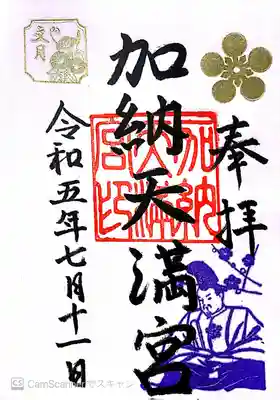 奉拝
加納天満宮
加納天満宮印
令和五年七月十一日
文月
CS CamScannerでスキャン